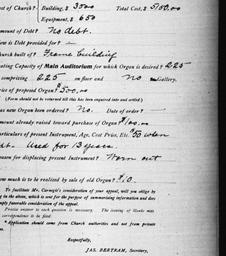 st of Church? Building, $ 3500.00 Total Cost, $ 5100.00
Equipment, $ 650
mount of Debt? No debt.
ow is Debt provided for?
hurch built of? Frame building
ating Capacity of Main Auditorium for which Organ is desired? 225
comprising 225 on floor and no Gallery.
rice of proposed Organ? $500.00
(Form should not be returned till this has been inquired into and settled.)
as new Organ been ordered? No. Date of order?
mount already raised toward purchase of Organ? $100.00
articulars of present Instrument, Age, Cost Price, Etc. $50 when
Used for 13 years.
eason for displacing present Instrument? Worn out
ow much is to be realized by sale of old Organ? $10.
To facilitate Mr. Carnegie's consideration of your appeal, will you oblige by
ng in the above, which is sent for the purpose of summarizing information and does
imply favorable consideration of the appeal.
Precise answer to each question is necessary. The issuing of blanks may
correspondence to be filed.
Application should come from Church authorities and not from private
Respectfully,
JAS. BERTRAM, Secretary,